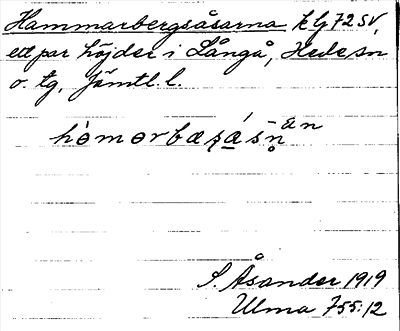 Hammarbergsåsarna kg 72 SV,
ett par höjder i Långå, Hede sn
o. tg, Jämtl. l.
S. Åsander 1919
Ulma 755:12